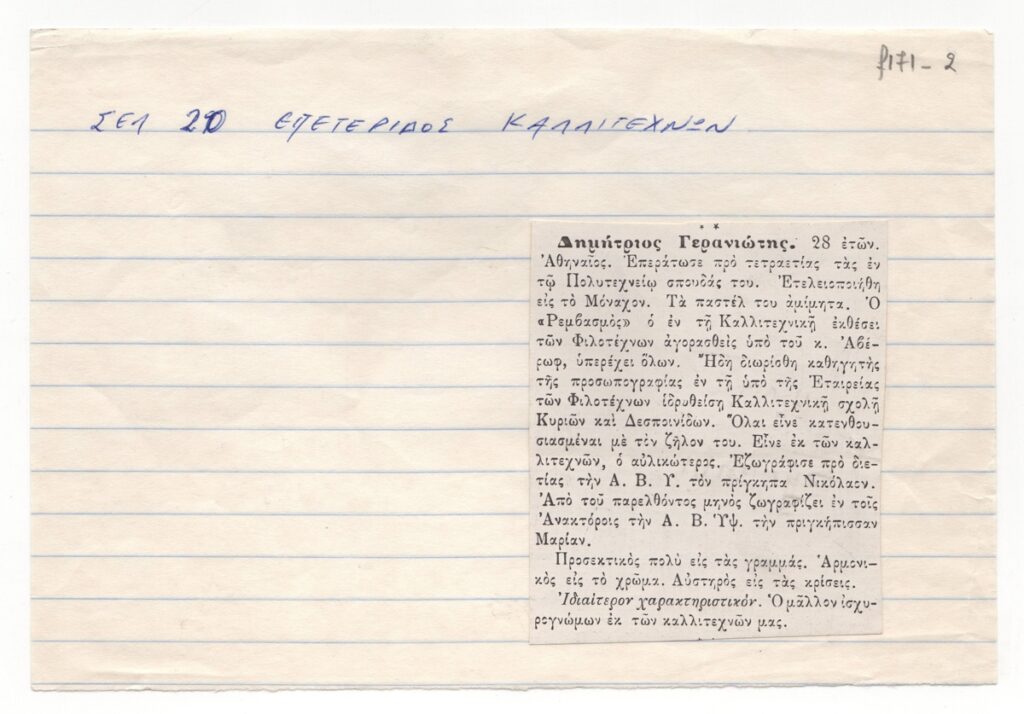 f171-2
ΣΕΛ 20 ΕΠΕΤΕΡΙΔΟΣ ΚΑΛΛΙΤΕΧΝΩΝ
Δημήτριος Γερανιώτης. 28 ἐτῶν.
Ἀθηναῖος. Ἐπεράτωσε πρὸ τετραετίας τὰς ἐν
τῷ Πολυτεχνείῳ σπουδάς του. Ἐτελειοποιήθη
εἰς τὸ Μόναχον. Τὰ παστέλ του ἀμίμητα. Ὁ
«Ρεμβασμὸς» ὁ ἐν τῇ Καλλιτεχνικῇ ἐκθέσει
τῶν Φιλοτέχνων ἀγορασθεὶς ὑπὸ τοῦ κ. Ἀβέ-
ρωφ, ὑπερέχει ὅλων. Ἤδη διωρίσθη καθηγητὴς
τῆς προσωπογραφίας ἐν τῇ ὑπὸ τῆς Ἑταιρείας
τῶν Φιλοτέχνων ἱδρυθείσῃ Καλλιτεχνικῇ σχολῇ
Κυριῶν καὶ Δεσποινίδων. Ὅλαι εἶνε κατενθου-
σιασμέναι μὲ τὸν ζῆλον του. Εἶνε ἐκ τῶν καλ-
λιτεχνῶν, ὁ αὐλικώτερος. Ἐζωγράφισε πρὸ διε-
τίας τὴν Α. Β. Υ. τὸν πρίγκηπα Νικόλαον.
Ἀπὸ τοῦ παρελθόντος μηνὸς ζωγραφίζει ἐν τοῖς
Ἀνακτόροις τὴν Α. Β. Ὑψ. τὴν πριγκήπισσαν
Μαρίαν.
Προσεκτικὸς πολὺ εἰς τὰς γραμμάς. Ἁρμονι-
κὸς εἰς τὸ χρῶμα. Αὐστηρὸς εἰς τὰς κρίσεις.
Ἰδιαίτερον χαρακτηριστικόν. Ὁ μᾶλλον ἰσχυ-
ρογνώμων ἐκ τῶν καλλιτεχνῶν μας.